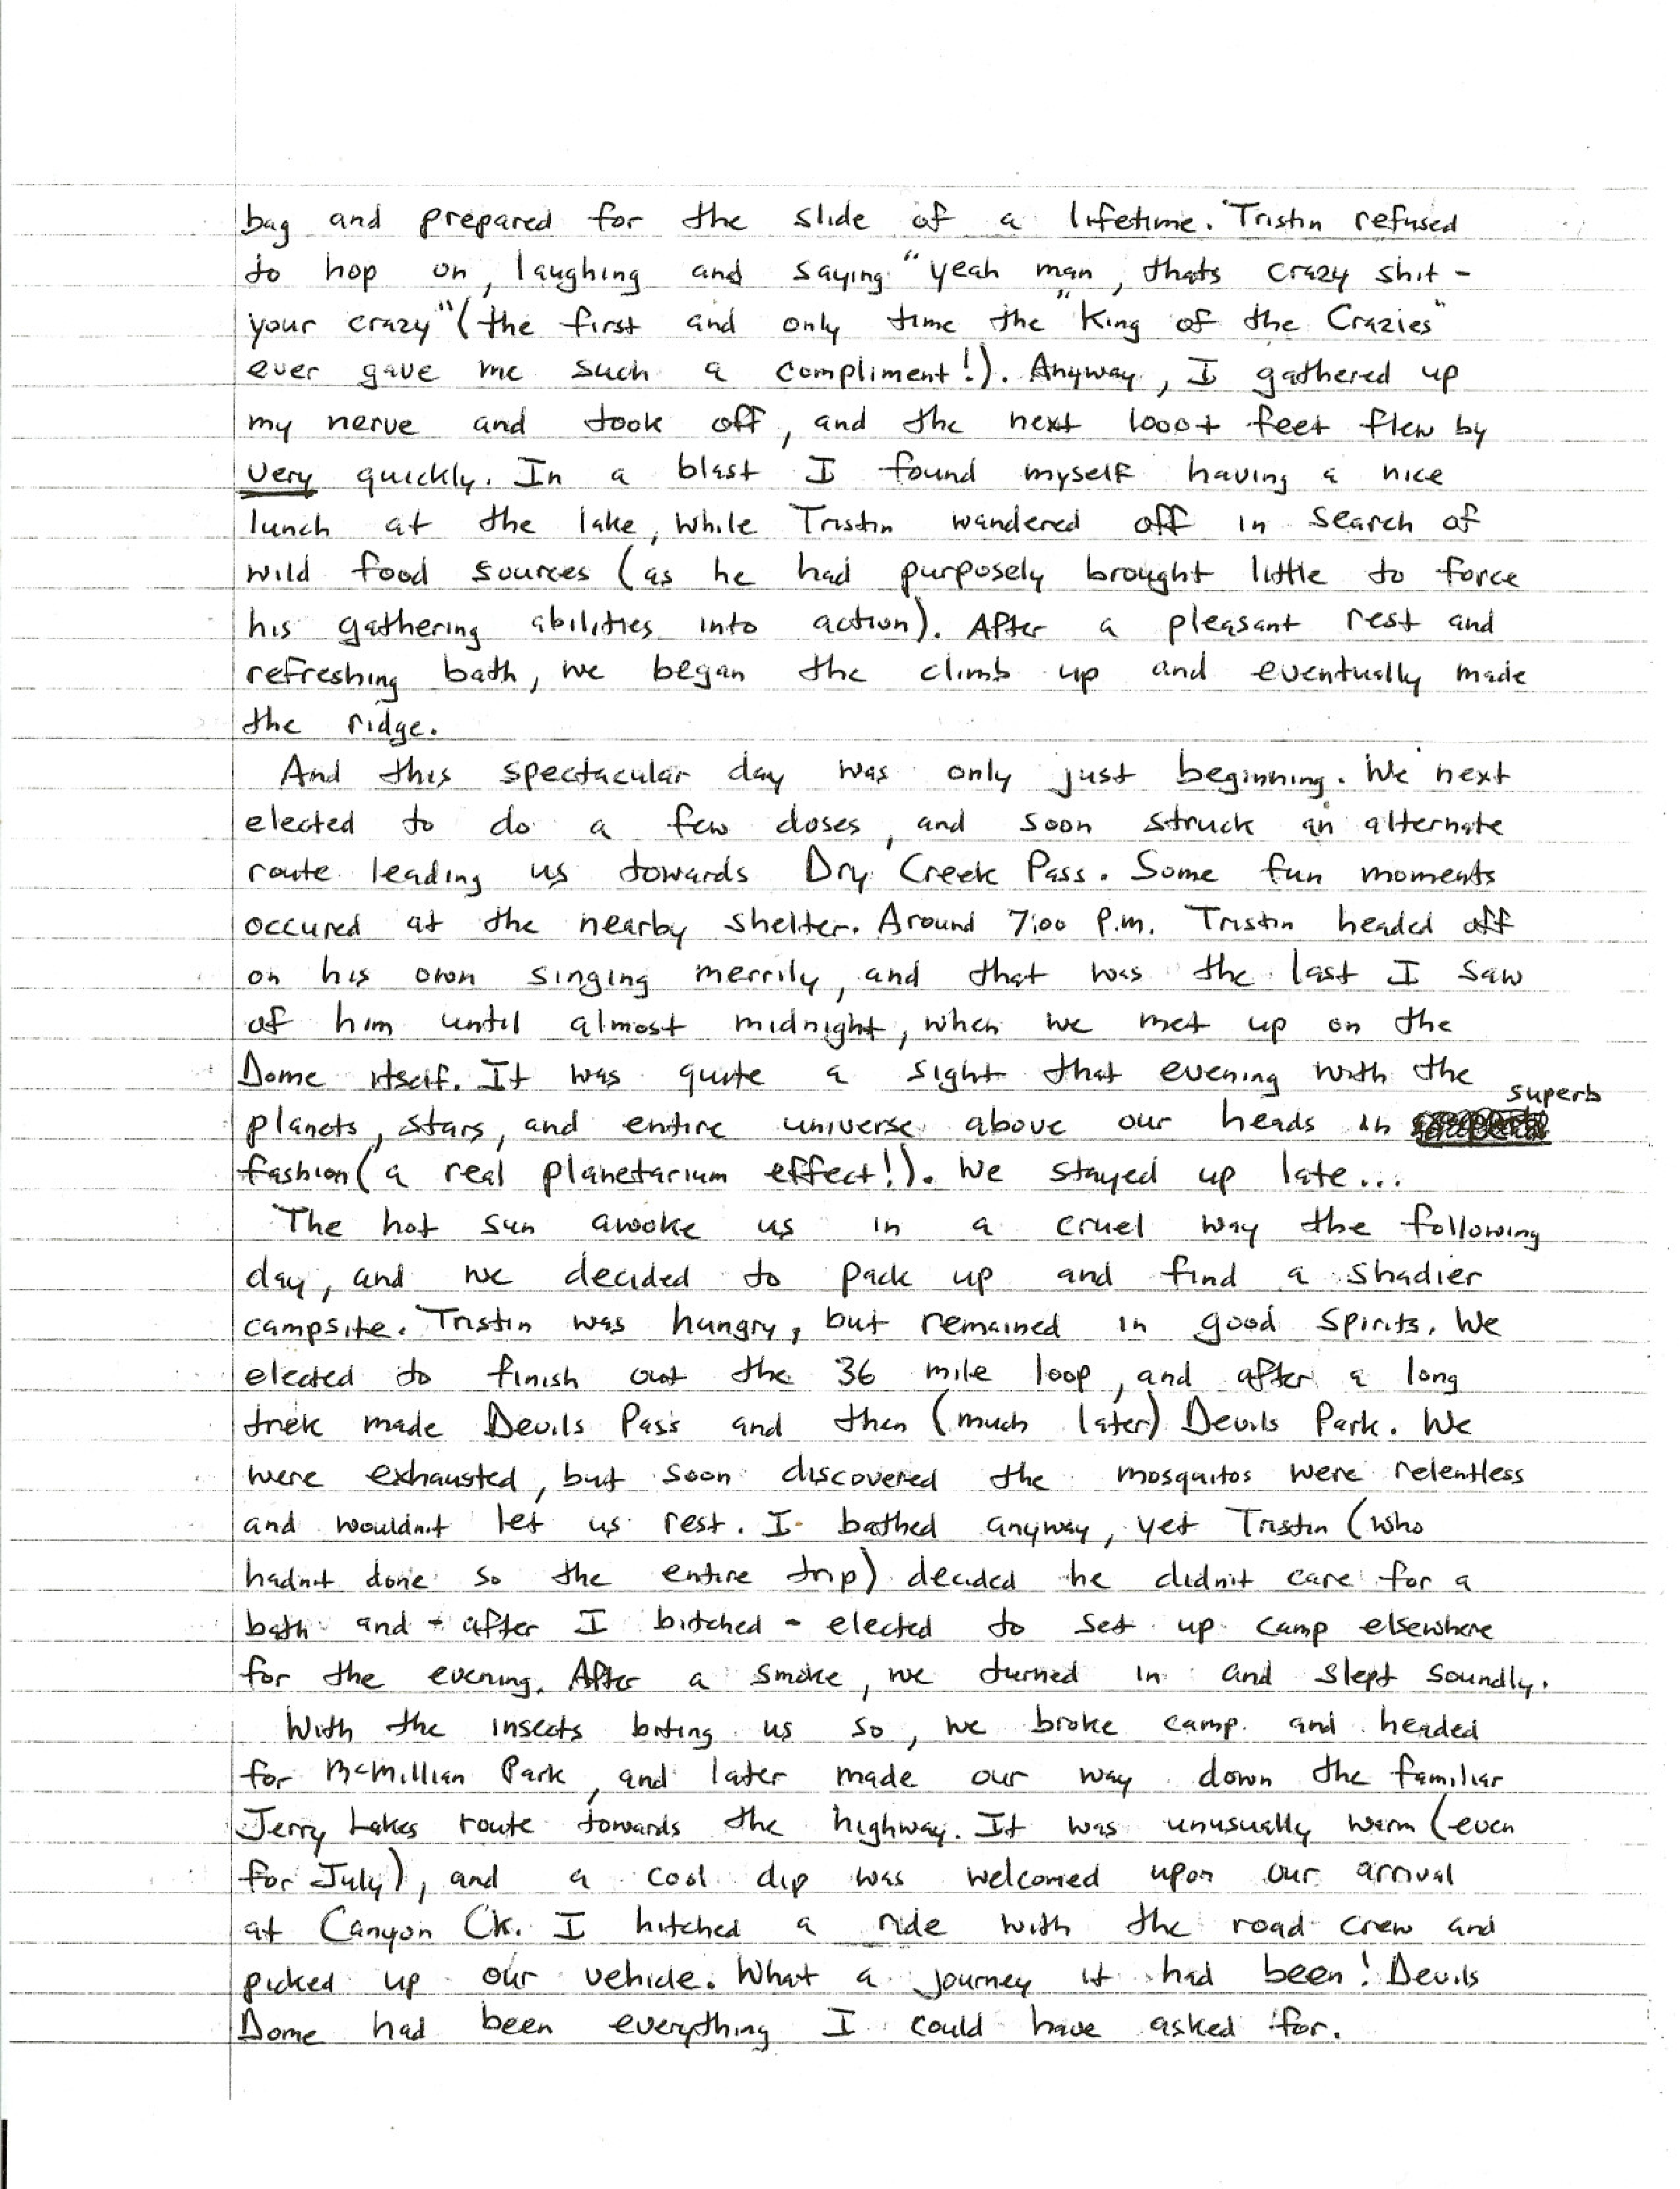 bag and prepared for the slide of a lifetime. Tristin refused
to hop on, laughing and saying "yeah man, thats crazy shit -
your crazy" (the first and only time the "King of the Crazies"
ever gave me such a compliment!). Anyway, I gathered up
my nerve and took off, and the next 1000+ feet flew by
very quickly. In a blast I found myself having a nice
lunch at the lake, while Tristin wandered off in search of
wild food sources (as he had purposely brought little to force
his gathering abilities into action). After a pleasant rest and
refreshing bath, we began the climb up and eventually made
the ridge.
And this spectacular day was only just beginning. We next
elected to do a few doses, and soon struck an alternate
route leading us towards Dry Creek Pass. Some fun moments
occured at the nearby shelter. Around 7:00 P.m. Tristin headed off
on his own singing merrily, and that was the last I saw
of him until almost midnight, when we met up on the
Dome itself. It was quite a sight that evening with the
planets, stars, and entire universe above our heads in superb
fashion (a real planetarium effect!). We stayed up late...
The hot sun awoke us in a cruel way the following
day, and we decided to pack up and find a shadier
campsite. Tristin was hungry, but remained in good spirits. We
elected to finish out the 36 mile loop, and after a long
trek made Devils Pass and then (much later) Devils Park. We
were exhausted, but soon discovered the mosquitos were relentless
and wouldn't let us rest. I bathed anyway, yet Tristin (who
hadn't done so the entire trip) decided he didn't care for a
bath and - after I bitched - elected to set up camp elsewhere
for the evening. After a smoke, we turned in and slept soundly.
With the insects biting us so, we broke camp and headed
for McMillian Park, and later made our way down the familiar
Jerry Lakes route towards the highway. It was unusually warm (even
for July), and a cool dip was welcomed upon our arrival
at Canyon Ck. I hitched a ride with the road crew and
picked up our vehicle. What a journey it had been! Devils
Dome had been everything I could have asked for.